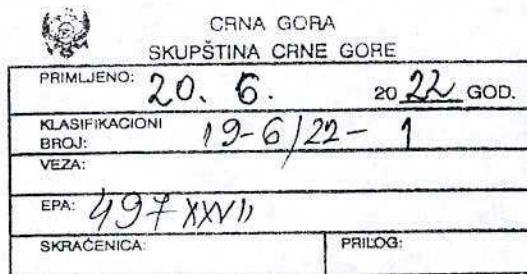 CRNA GORA
SKUPŠTINA CRNE GORE
PRIMLJENO: 20. 6. 20 22 GOD.
KLASIFIKACIONI
BROJ: 19-6/22- 1
VEZA:
EPA: 497 XXVII
SKRAĆENICA: PRILOG: